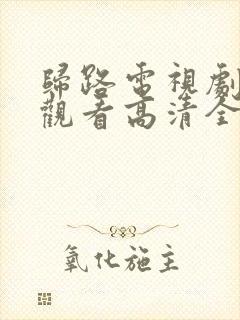 歸路電視劇
觀看高清全
氧化施主